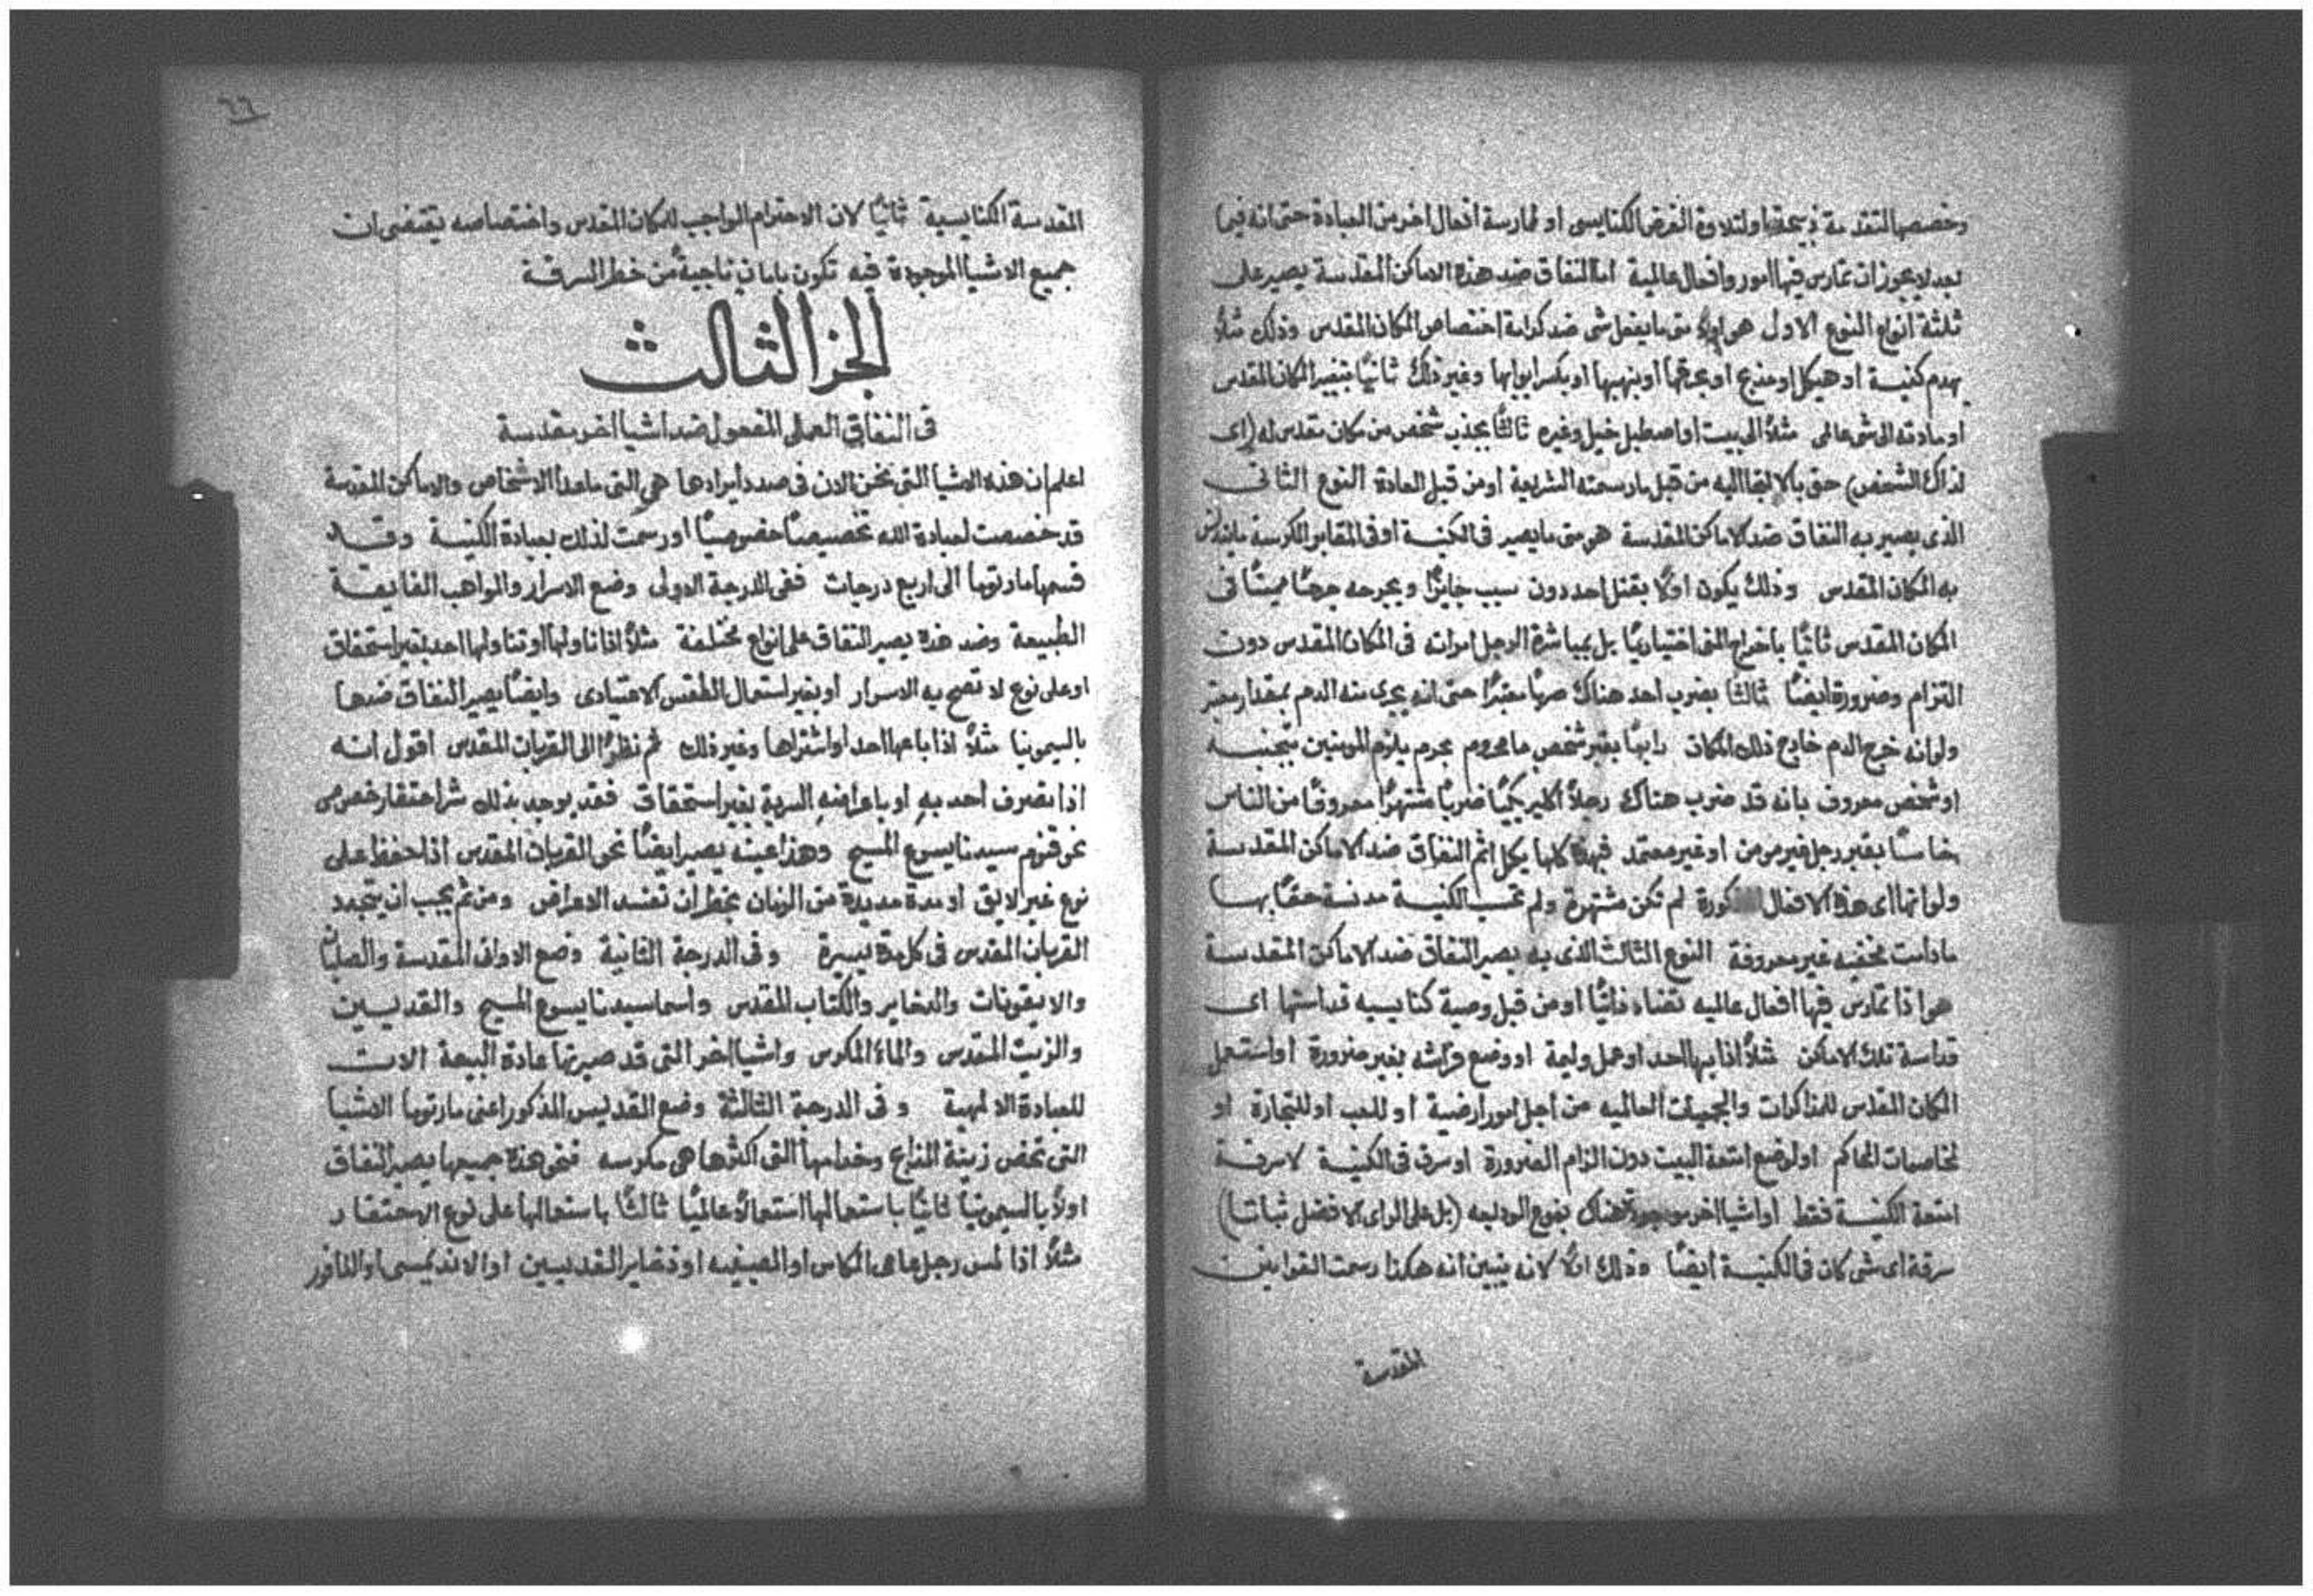 وخصصها لتقدمة ذبيحة او لتلاوة الفرض الكنايسي او لممارسة افعال اخر من العبادة حتى انه فيما
بعد لا يجوز ان تمارس فيها امور وافعال عالمية اما النفاق ضد هذه الاماكن المقدسة يصير على
ثلثة انواع النوع الاول هو اولاً متى ما يفعل شي ضد كرامة اختصاص المكان المقدس وذلك مثلاً
بهدم كنيسة او هيكل او مذبح او بحرقها او بنهبها او بكسر ابوابها وغير ذلك ثانياً بتغيير المكان المقدس
او مادته الى شي عالمي مثلاً الى بيت او اصطبل خيل وغيره ثالثاً بجذب شخص من مكان مقدس له (اي
لذاك الشخص) حق بالالتجا اليه من قبل ما رسمته الشريعة او من قبل العادة النوع الثاني
الذي يصير به النفاق ضد الاماكن المقدسة هو متى ما يصير في الكنيسة او في المقابر المكرسة ما يتدنس
به المكان المقدس وذلك يكون اولاً بقتل احد دون سبب جايزاً وبجرحه جرحاً مميتاً في
المكان المقدس ثانياً باخراج المني اختيارياً بل بمباشرة الرجل امراته في المكان المقدس دون
التزام وضرورة ايضاً ثالثاً بضرب احد هناك ضرباً معتبراً حتى انه يجري منه الدم بمقدار معتبر
ولو انه خرج الدم خارج ذلك المكان رابعاً بقبر شخص ما محروم بحرم يلزم المومنين بتجنبه
او شخص معروف بانه قد ضرب هناك رجلاً اكليريكياً ضرباً مشتهراً معروفاً من الناس
خامساً بقبر رجل غير مومن او غير معتمد فبهذه كلها يكمل اثم النفاق ضد الاماكن المقدسة
ولو انها اي هذه الافعال كورة لم تكن مشتهرة ولم تحسب الكنيسة مدنسة حقاً بها
ما دامت مخفيه غير معروفة النوع الثالث الذي به يصير النفاق ضد الاماكن المقدسة
هو اذا تمارس فيها افعال عالميه تضاد ذاتياً او من قبل وصية كنايسيه قداستها اي
قداسة تلك الاماكن مثلاً اذا بها احد اوعمل وليمة او وضع فراشه بغير ضرورة او استعمل
المكان المقدس للمذاكرات والجمعيات العالميه من اجل امور ارضية او للعب او للتجارة او
لمخاصمات المحاكم او لوضع امتعة البيت دون الزام الضرورة او سرق في الكنيسة لا سرقة
امتعة الكنيسة فقط او اشيا اخر موجودة هناك بنوع الوديعه (بل على الراي الافضل ثباتا)
سرقة اي شي كان في الكنيسة ايضاً وذلك اولاً لانه يتبين انه هكذا رسمت القوانين
المقدسة
٦٦
المقدسة الكنايسية ثانياً لان الاحترام الواجب للمكان المقدس واختصاصه يقتضي ان
جميع الاشيا الموجودة فيه تكون بامان ناجيةً من خطر السرقة
الجز الثالث
في النفاق العملي المفعول ضد اشيا اخر مقدسة
اعلم ان هذه الاشيا التي نحن الان في صدد ايرادها هي التي ما عدا الاشخاص والاماكن المقدسة
قد خصصت لعبادة الله تخصيصاً خصوصياً او رسمت لذلك بعبادة الكنيسة وقد
قسمها مارتوما الى اربع درجات ففي الدرجة الاولى وضع الاسرار والمواهب الفايقة
الطبيعة وضد هذه يصير النفاق على انواع مختلفة مثلاً اذا ناولها او تناولها احد بغير استحقاق
او على نوع لا تصح به الاسرار او بغير استعمال الطقس الاعتيادي وايضاً يصير النفاق ضدها
بالسيمونيا مثلاً اذا باعها احد او اشتراها وغير ذلك ثم نظراً الى القربان المقدس اقول انه
اذا تصرف احد به او باعراضه السرية بغير استحقاق فقد يوجد بذلك شر احتقار خصوصي
نحو قنوم سيدنا يسوع المسيح وهذا عينه يصير ايضاً نحو القربان المقدس اذا حفظ على
نوع غير لايق او مدة مديدة من الزمان بخطر ان تفسد الاعراض ومن ثم يجب ان يتجدد
القربان المقدس في كل مدة يسيرة وفي الدرجة الثانية وضع الاواني المقدسة والصلبان
والايقونات والذخاير والكتاب المقدس واسما سيدنا يسوع المسيح والقديسين
والزيت المقدس والماء المكرس واشيا اخر التي قد صيرتها عادة البيعة الات
للعبادة الالهية وفي الدرجة الثالثة وضع القديس المذكور اعني مارتوما الاشيا
التي تخص زينة المذابح وخدامها التي اكثرها هي مكرسه فنحو هذه جميعها يصير النفاق
اولاً بالسيمونيا ثانياً باستعمالها استعمالاً عالمياً ثالثاً باستعمالها على نوع الاحتقار
مثلاً اذا لمس رجل عامي الكاس او الصينيه او ذخاير القديسين او الاندميسي او النافور